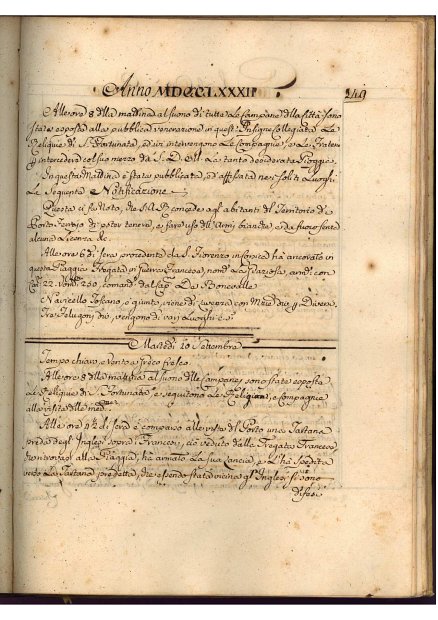 Anno MDCCLXXXII
249
Alle ore 8 della mattina al suono di tutte le Campane della Città sono
state esposte alla pubblica venerazione in quest' Insigne Collegiata Le
Reliquie di S. Fortunata, ed in intervengono Le Compagnie, e Le Fraterie
p intercedere col suo mezzo da S. D. M. La tanto desiderata Pioggia
In questa Mattina è stata pubblicata, ed affissata nei soliti Luoghi
La seguente Notificazione
Questa si fa Nota, che si concede agl' abitanti del Territorio di
Porto Ferrajo di poter tenere, e fare uso dell' Armi bianche, e da fuoco senza
alcuna Licenza &c.
Alle ore 6 di sera procedente da S. Fiorenzo in Corsica ha ancorato in
questa Piaggia Fregata in Guerra Francese, nom. La Graziosa, arm. con
Can. 22. Uom. 200, comand. dal Cap. De Bonevalle
Navicello Toscano, è giunto, viene di con Mercanzie, e Diversi
Tra Felugoni &c, vengono di vari Luoghi &c.
Martedì 10 Settembre
Tempo chiaro, e vento a Greco fresco
Alle ore 8 della mattina al suono delle Campane sono state esposte
Le Reliquie di S. Fortunata, e seguitano Le Religioni, e Compagnie
alla visita delle med.
Alle ore 4½ di sera è comparso alla vista del Porto una Tartana
Preda degl' Inglesi sopra di Francesi, ciò veduto dalla Fregata Francese
che trovasi alla Piaggia, ha armato La sua Lancia, e L'ha spedita
verso La Tartana predetta, che essendo stata vicina gl' Inglesi si sono
difesi